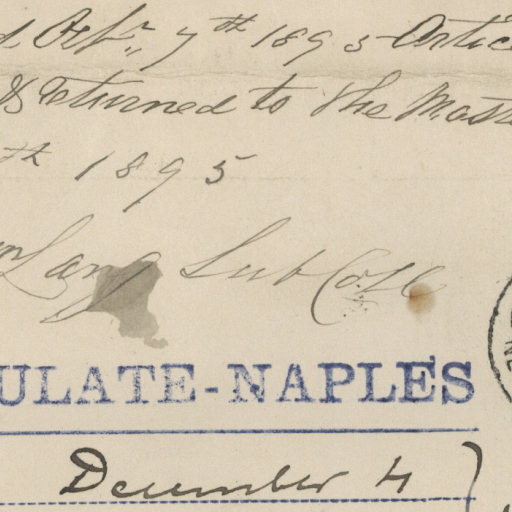 d Octr 7th 1895 Artic
& returned to the Maste
th 1895
Lang Sub Coll
ULATE-NAPLES
December 4